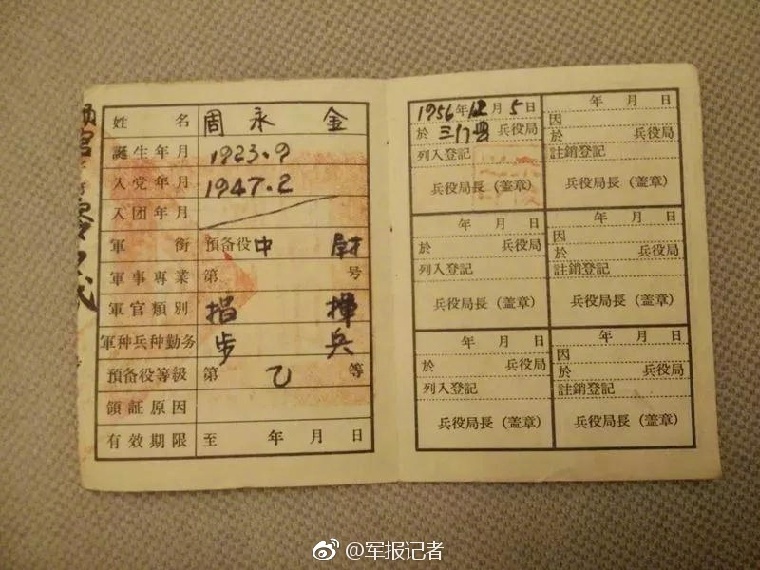 姓名 周永金
誕生年月 1923.9
入党年月 1947.2
入团年月
軍衔 預备役中尉
軍事專業 第 号
軍官類別 指揮
軍种兵种勤务 步兵
預备役等級 第乙等
領証原因
有效期限 至 年 月 日
1956年12月5日
於 三门县 兵役局
列入登記
兵役局長（盖章）
年 月 日
因
於 兵役局
註銷登記
兵役局長（盖章）
年 月 日
於 兵役局
列入登記
兵役局長（盖章）
年 月 日
因
於 兵役局
註銷登記
兵役局長（盖章）
年 月 日
於 兵役局
列入登記
兵役局長（盖章）
年 月 日
因
於 兵役局
註銷登記
兵役局長（盖章）
@军报记者